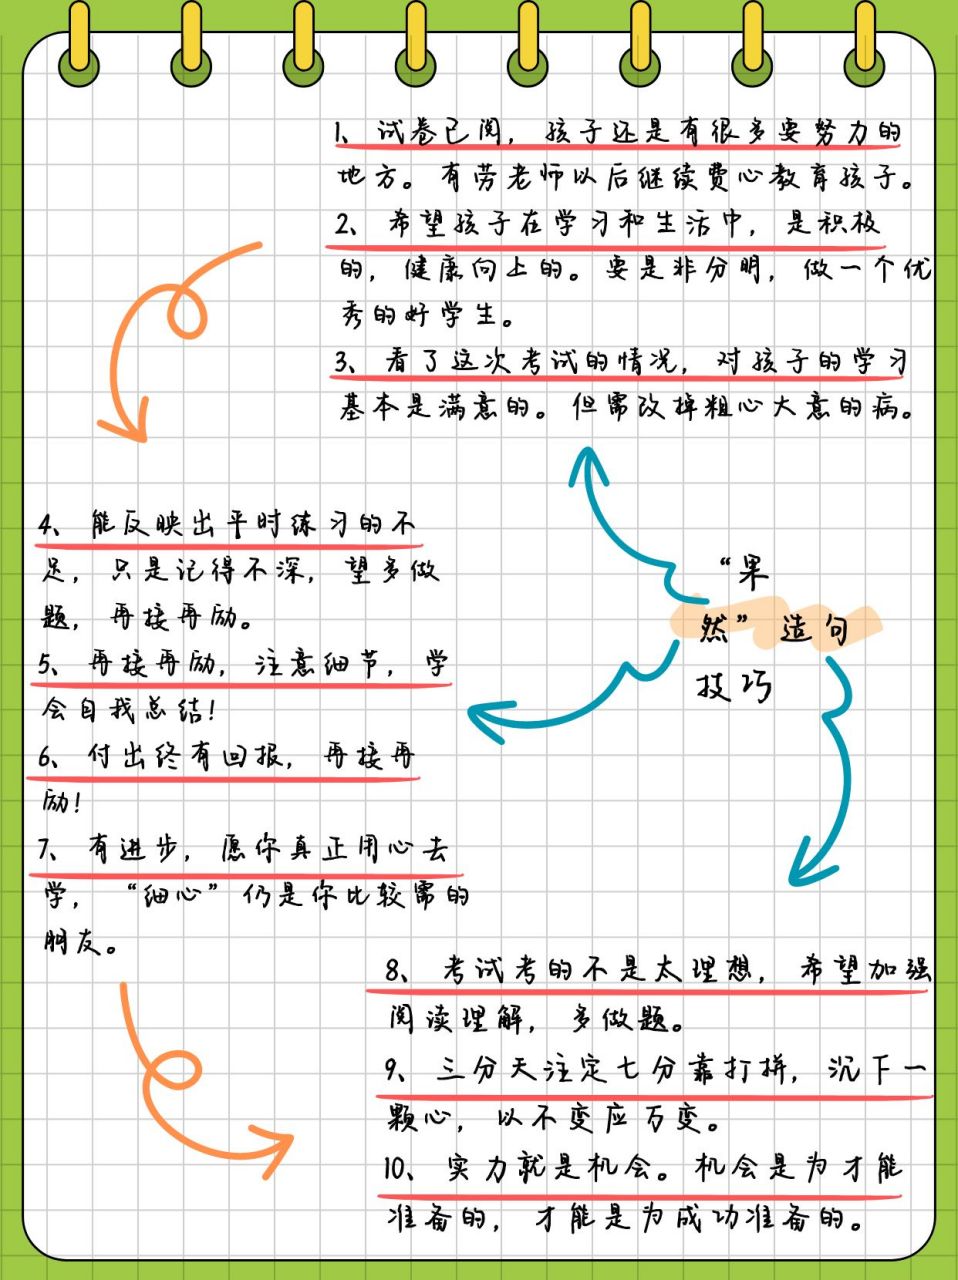 1、试卷已阅，孩子还是有很多要努力的
地方。有劳老师以后继续费心教育孩子。
2、希望孩子在学习和生活中，是积极
的，健康向上的。要是非分明，做一个优
秀的好学生。
3、看了这次考试的情况，对孩子的学习
基本是满意的。但需改掉粗心大意的病。
4、能反映出平时练习的不
足，只是记得不深，望多做
题，再接再励。
5、再接再励，注意细节，学
会自我总结！
6、付出终有回报，再接再
励！
7、有进步，愿你真正用心去
学，“细心”仍是你比较需的
朋友。
“果
然”造句
技巧
8、考试考的不是太理想，希望加强
阅读理解，多做题。
9、三分天注定七分靠打拼，沉下一
颗心，以不变应万变。
10、实力就是机会。机会是为才能
准备的，才能是为成功准备的。